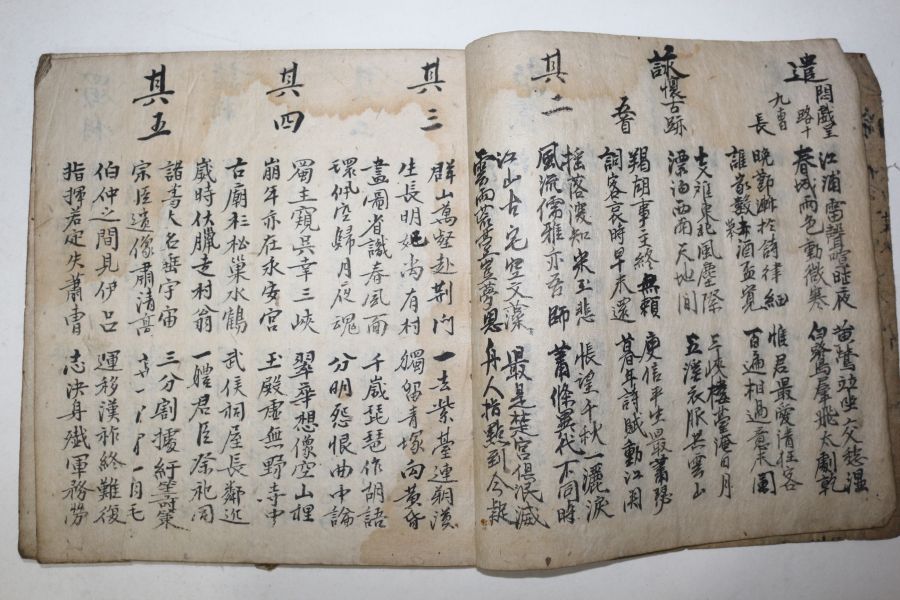 遣悶戲呈路十九曹長
江浦雷聲喧昨夜 黃鸝並坐交愁濕
春城雨色動微寒 白鷺羣飛太劇乾
晚節漸於詩律細 惟君最愛清狂客
誰家數去酒盃寬 百遍相過意未闌
詠懷古跡 五首
支離東北風塵際 三峽樓臺淹日月
漂泊西南天地間 五溪衣服共雲山
羯胡事主終無賴 庾信平生最蕭瑟
詞客哀時早未還 暮年詩賦動江關
其二
搖落深知宋玉悲 悵望千秋一灑淚
風流儒雅亦吾師 蕭條異代不同時
江山古宅空文藻 最是楚宮俱泯滅
雲雨荒臺豈夢思 舟人指點到今疑
其三
羣山萬壑赴荊門 一去紫臺連朔漠
生長明妃尚有村 獨留青塚向黃昏
畫圖省識春風面 千歲琵琶作胡語
環佩空歸月夜魂 分明怨恨曲中論
其四
蜀主窺吳幸三峽 翠華想像空山裡
崩年亦在永安宮 玉殿虛無野寺中
古廟杉松巢水鶴 武侯祠屋長鄰近
歲時伏臘走村翁 一體君臣祭祀同
其五
諸葛大名垂宇宙 三分割據紆籌策
宗臣遺像肅清高 毛
伯仲之間見伊呂 運移漢祚終難復
指揮若定失蕭曹 志決身殲軍務勞